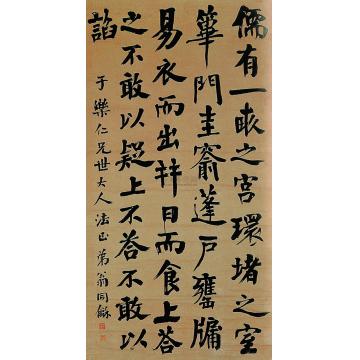 儒有一畝之宮環堵之室
篳門圭窬蓬戶甕牖
易衣而出并日而食上答
之不敢以疑上不答不敢以
諂
子樂仁兄世大人法正弟翁同龢